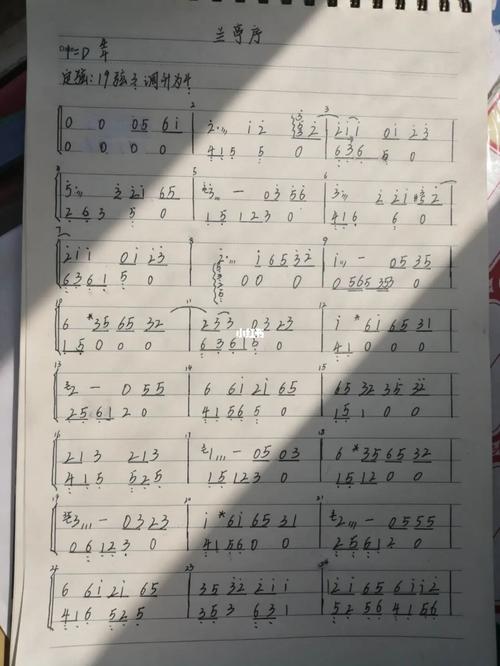 兰亭序
定弦:19弦3调升为4
2 3
0 0 05 6i | 2 i 2 32 | 2ii 0i 23
0 0 0 0 | 415 5 0 | 636 5 0
5 6
5 2 2i 65 | 3 — 03 56 | 3 2 2i 2
2 6 3 5 0 | 15 123 0 | 416 6 0
7 8 9
2ii 0i 23 | 2 i 65 32 | i — 05 35
6361 5 0 | 0 0 0 | 0565 353 0
10 11 12
6 *35 65 32 | 23 3 03 23 | i *6i 65 31
15 0 0 0 | 63615 0 | 41 0 0 0
13 14 15
2 — 0 55 | 6 6i 2i 65 | 65 32 35 32
2561 2 0 | 41565 0 | 15 1 0 0
16 17 18
213 213 | 1 — 05 03 | 6 *35 65 32
415 525 | 15123 0 | 1512 0 0
19 20 21
3 — 03 23 | i *6i 65 31 | 2 — 05 55
06123 0 | 4156 0 0 | 2561 2 0
23
6 6i 2i 65 | 35 32 2ii | 2i 65 6ii2
416 525 | 353 631 | 52 56 41 56
小红书